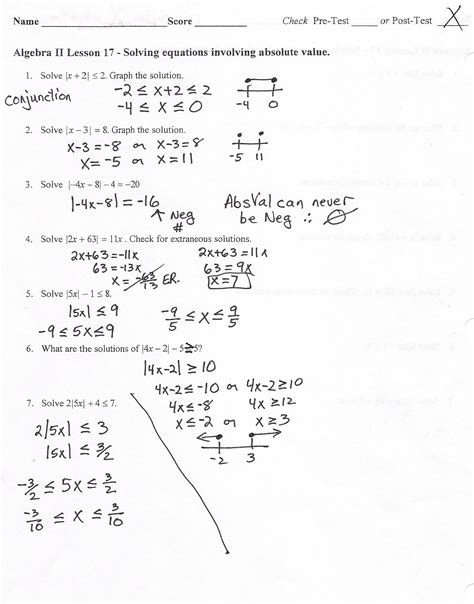 Name ____________ Score ____________ Check Pre-Test _____ or Post-Test X
Algebra II Lesson 17 - Solving equations involving absolute value.
1. Solve |x + 2| ≤ 2. Graph the solution.
conjunction
-2 ≤ x+2 ≤ 2
-4 ≤ x ≤ 0
-4 0
2. Solve |x – 3| = 8. Graph the solution.
x-3=-8 or x-3=8
x=-5 or x=11
-5 11
3. Solve |–4x – 8| – 4 = –20
|-4x-8| = -16
↑ Neg
#
AbsVal can never
be Neg ∴ ∅
4. Solve |2x + 63| = 11x . Check for extraneous solutions.
2x+63=-11x
63 = -13x
x = -63/13 ER.
2x+63=11x
63=9x
x=7
5. Solve |5x| – 1 ≤ 8.
|5x| ≤ 9
-9 ≤ 5x ≤ 9
-9/5 ≤ x ≤ 9/5
6. What are the solutions of |4x – 2| – 5 ≥ 5?
|4x-2| ≥ 10
4x-2 ≤ -10 or 4x-2 ≥ 10
4x ≤ -8 4x ≥ 12
x ≤ -2 or x ≥ 3
-2 3
7. Solve 2|5x| + 4 ≤ 7.
2|5x| ≤ 3
|5x| ≤ 3/2
-3/2 ≤ 5x ≤ 3/2
-3/10 ≤ x ≤ 3/10